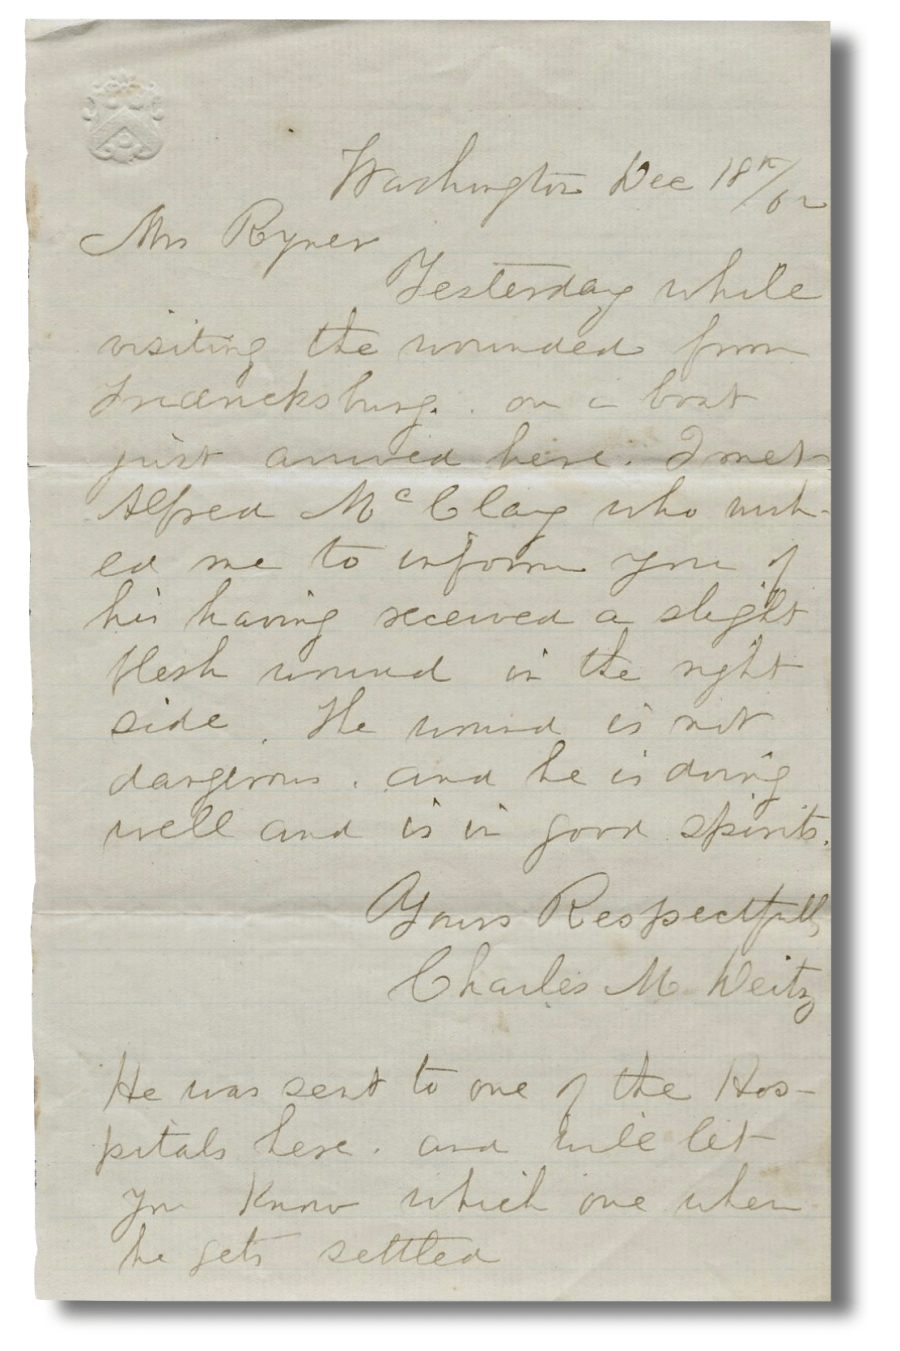 Washington Dec 18th/62
Mrs Ryner
Yesterday while
visiting the wounded from
Fredricksburg. on a boat
just arrived here. I met
Alfred McClay who wish-
ed me to inform you of
his having received a slight
flesh wound in the right
side. The wound is not
dangerous. and he is doing
well and is in good spirits.
Yours Respectfully
Charles M. Deitz
He was sent to one of the Hos-
pitals here. and will let
you Know which one when
he gets settled